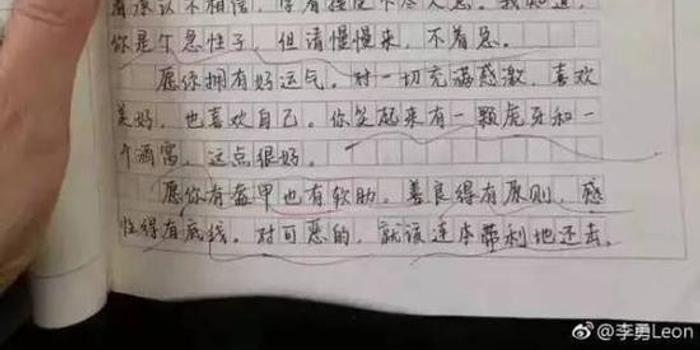 你是个急性子，但请慢慢来，不着急。
愿你拥有好运气。对一切充满感激，喜欢
美好，也喜欢自己。你笑起来有一颗虎牙和一
个酒窝，这点很好。
愿你有盔甲也有软肋，善良得有原则，感
性得有底线。对可恶的，就该连本带利地还去。
@李勇Leon